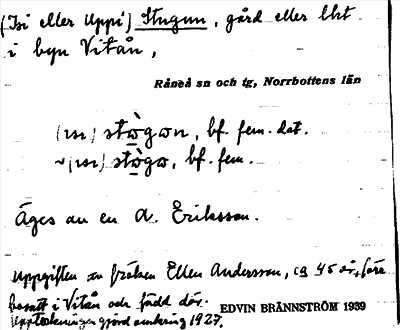 (Isi eller Uppi) Stugun, gård eller lht
i byn Vitån,
Råneå sn och tg, Norrbottens län
bf. fem. dat.
bf. fem.
Äges av en A. Eriksson.
Uppgiften av fröken Ellen Andersson, ca 45 år, förr
bosatt i Vitån och född där.
Uppteckningen gjord omkring 1927.
EDVIN BRÄNNSTRÖM 1939